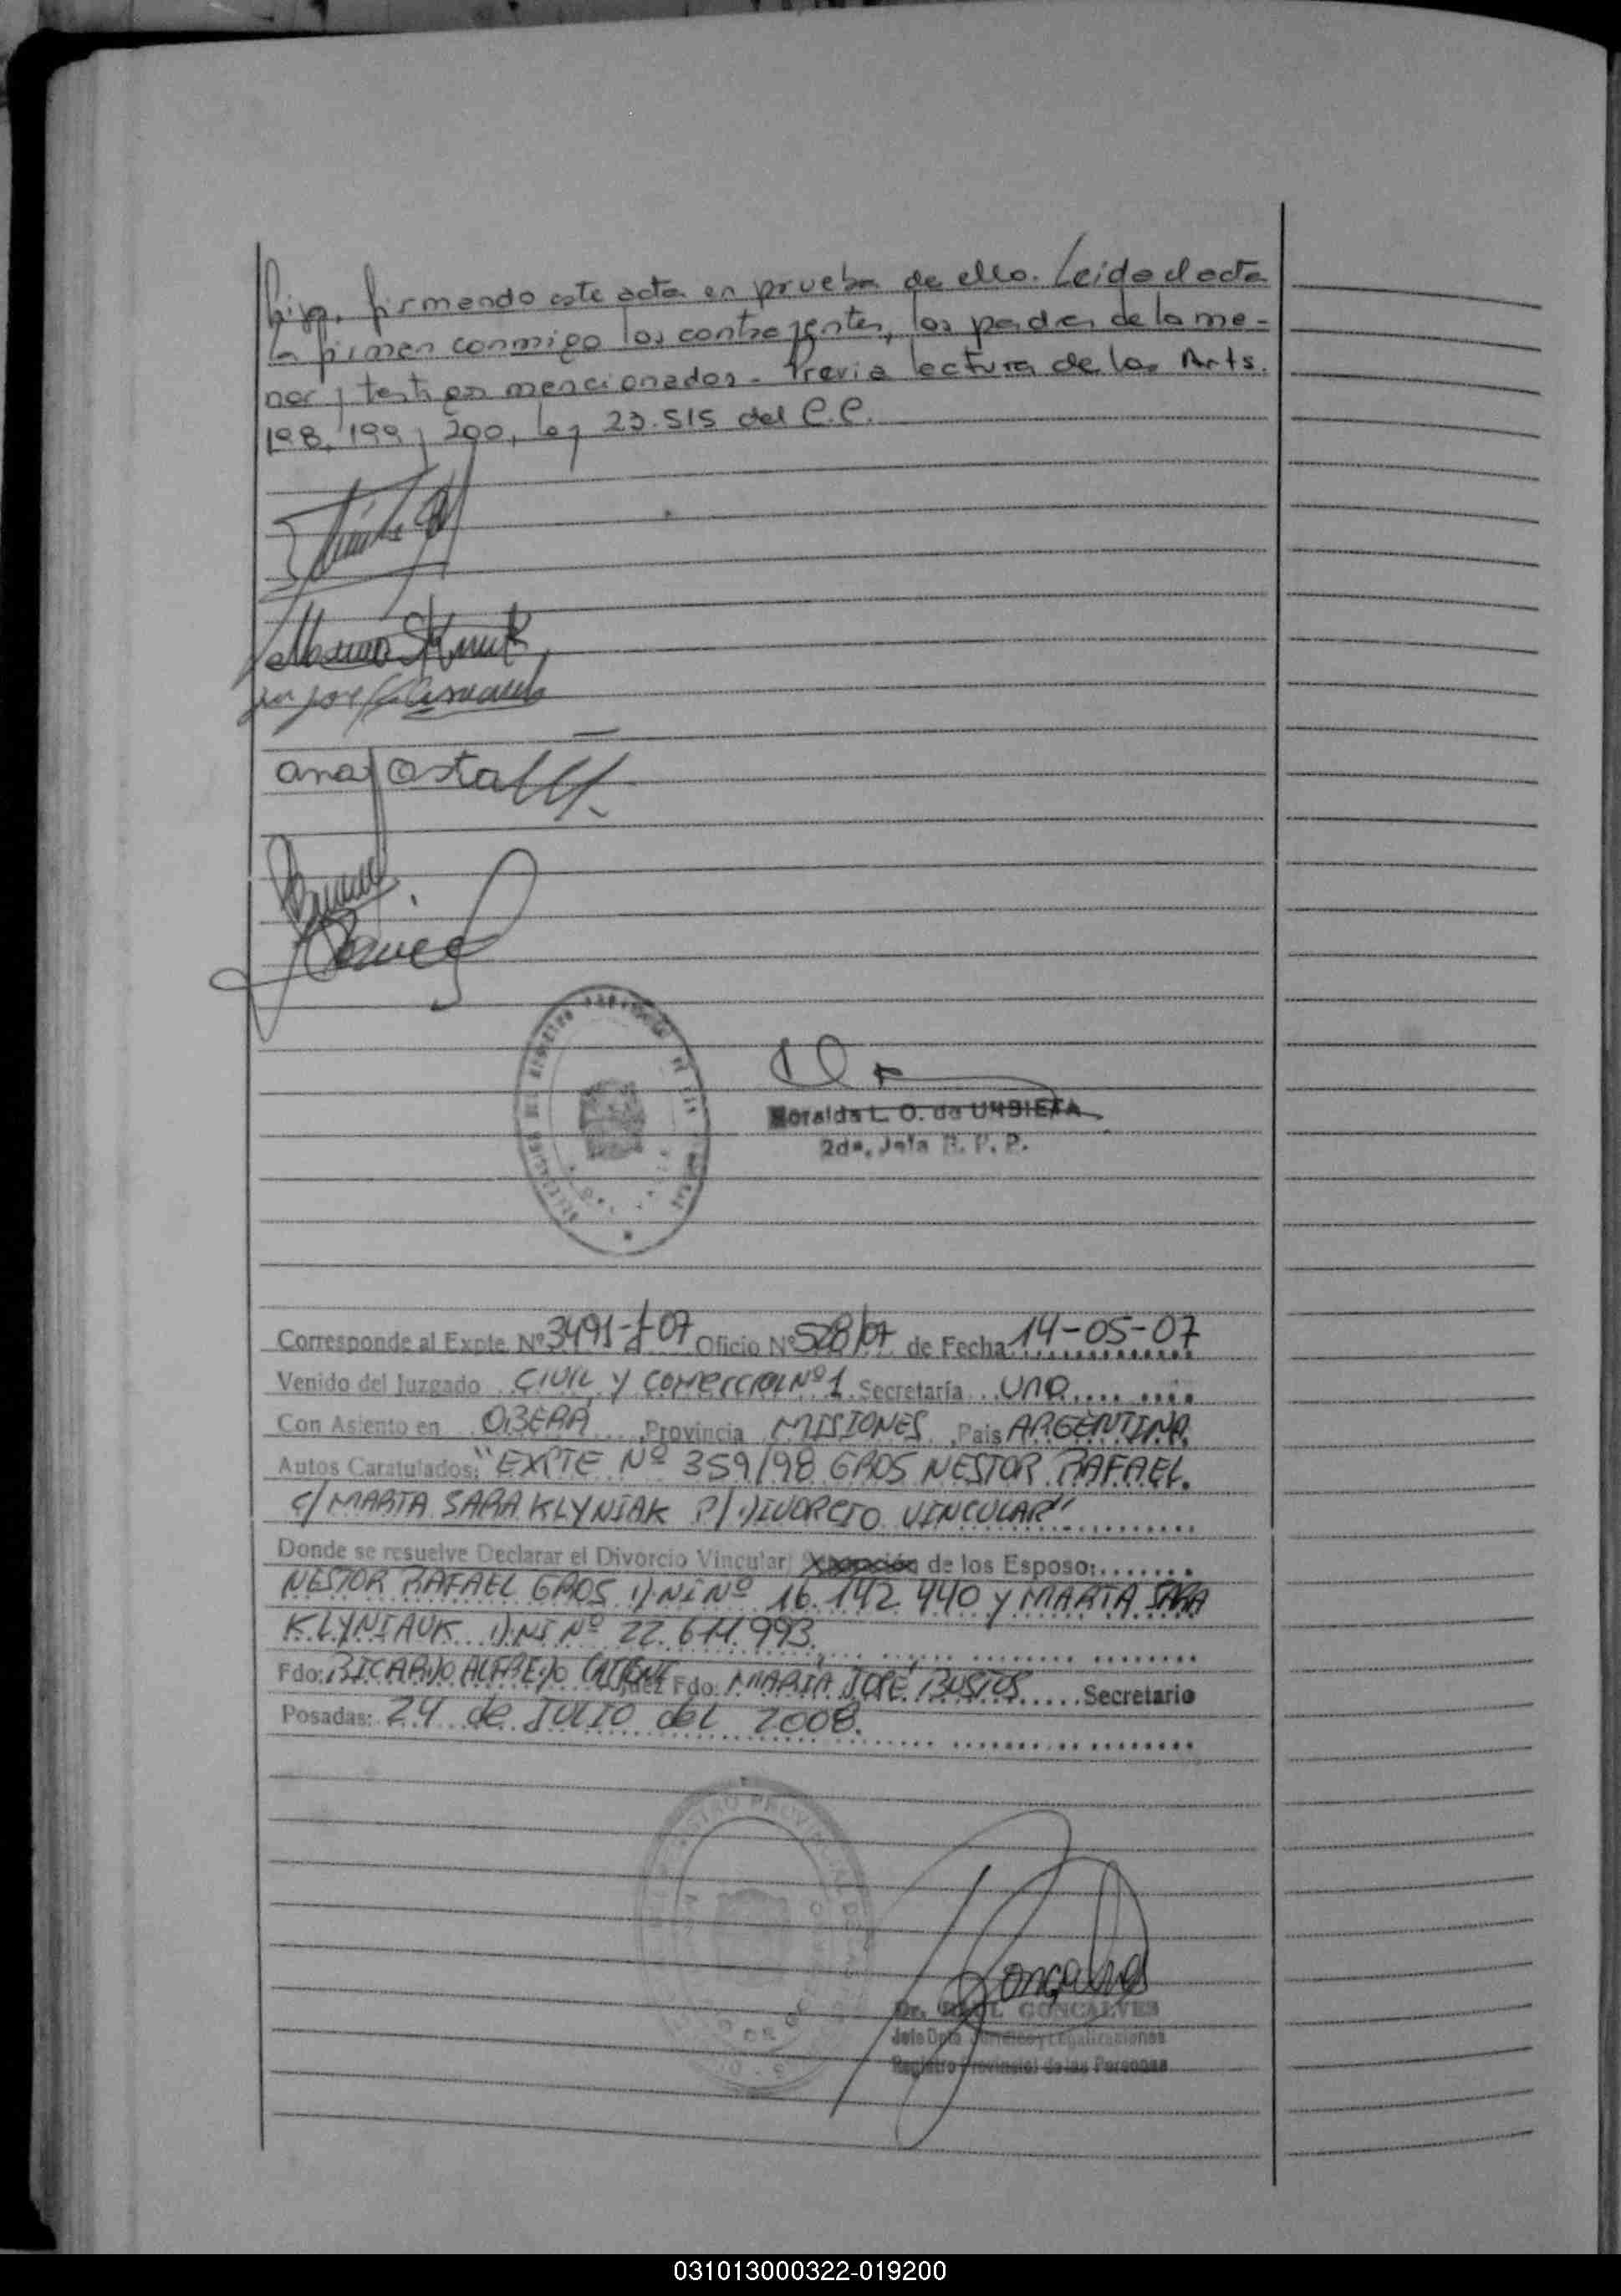 hija, firmando este acta en prueba de ello. Leida el acta
la firman conmigo los contrayentes, los padres de la me-
nor y testigos mencionados - Previa lectura de los Arts.
198, 199 y 200, ley 23.515 del C.C.
ana Costa
Horalda L. O. de URBIETA
2da. Jefa R. P. P.
Corresponde al Expte. Nº 3491-J-07 Oficio Nº 528/07 de Fecha 14-05-07
Venido del Juzgado CIVIL Y COMERCIAL Nº 1 Secretaría UNO
Con Asiento en OBERA Provincia MISIONES, Pais ARGENTINA
Autos Caratulados: "EXPTE Nº 359/98 GROS NESTOR RAFAEL
C/ MARTA SARA KLYNIAK P/ DIVORCIO VINCULAR"
Donde se resuelve Declarar el Divorcio Vincular de los Esposo:
NESTOR RAFAEL GROS D/NI Nº 16.142.440 y MARTA SARA
KLYNIAUK D/NI Nº 22.611.993.
Fdo: RICARDO ALFREDO Juez Fdo. MARIA JOSÉ BUSTOS Secretario
Posadas: 24 de JULIO del 2008.
Gonçalves
Dr. RAUL GONCALVES
Jefe Dpto. Jurídico y Legalizaciones
Registro Provincial de las Personas
031013000322-019200